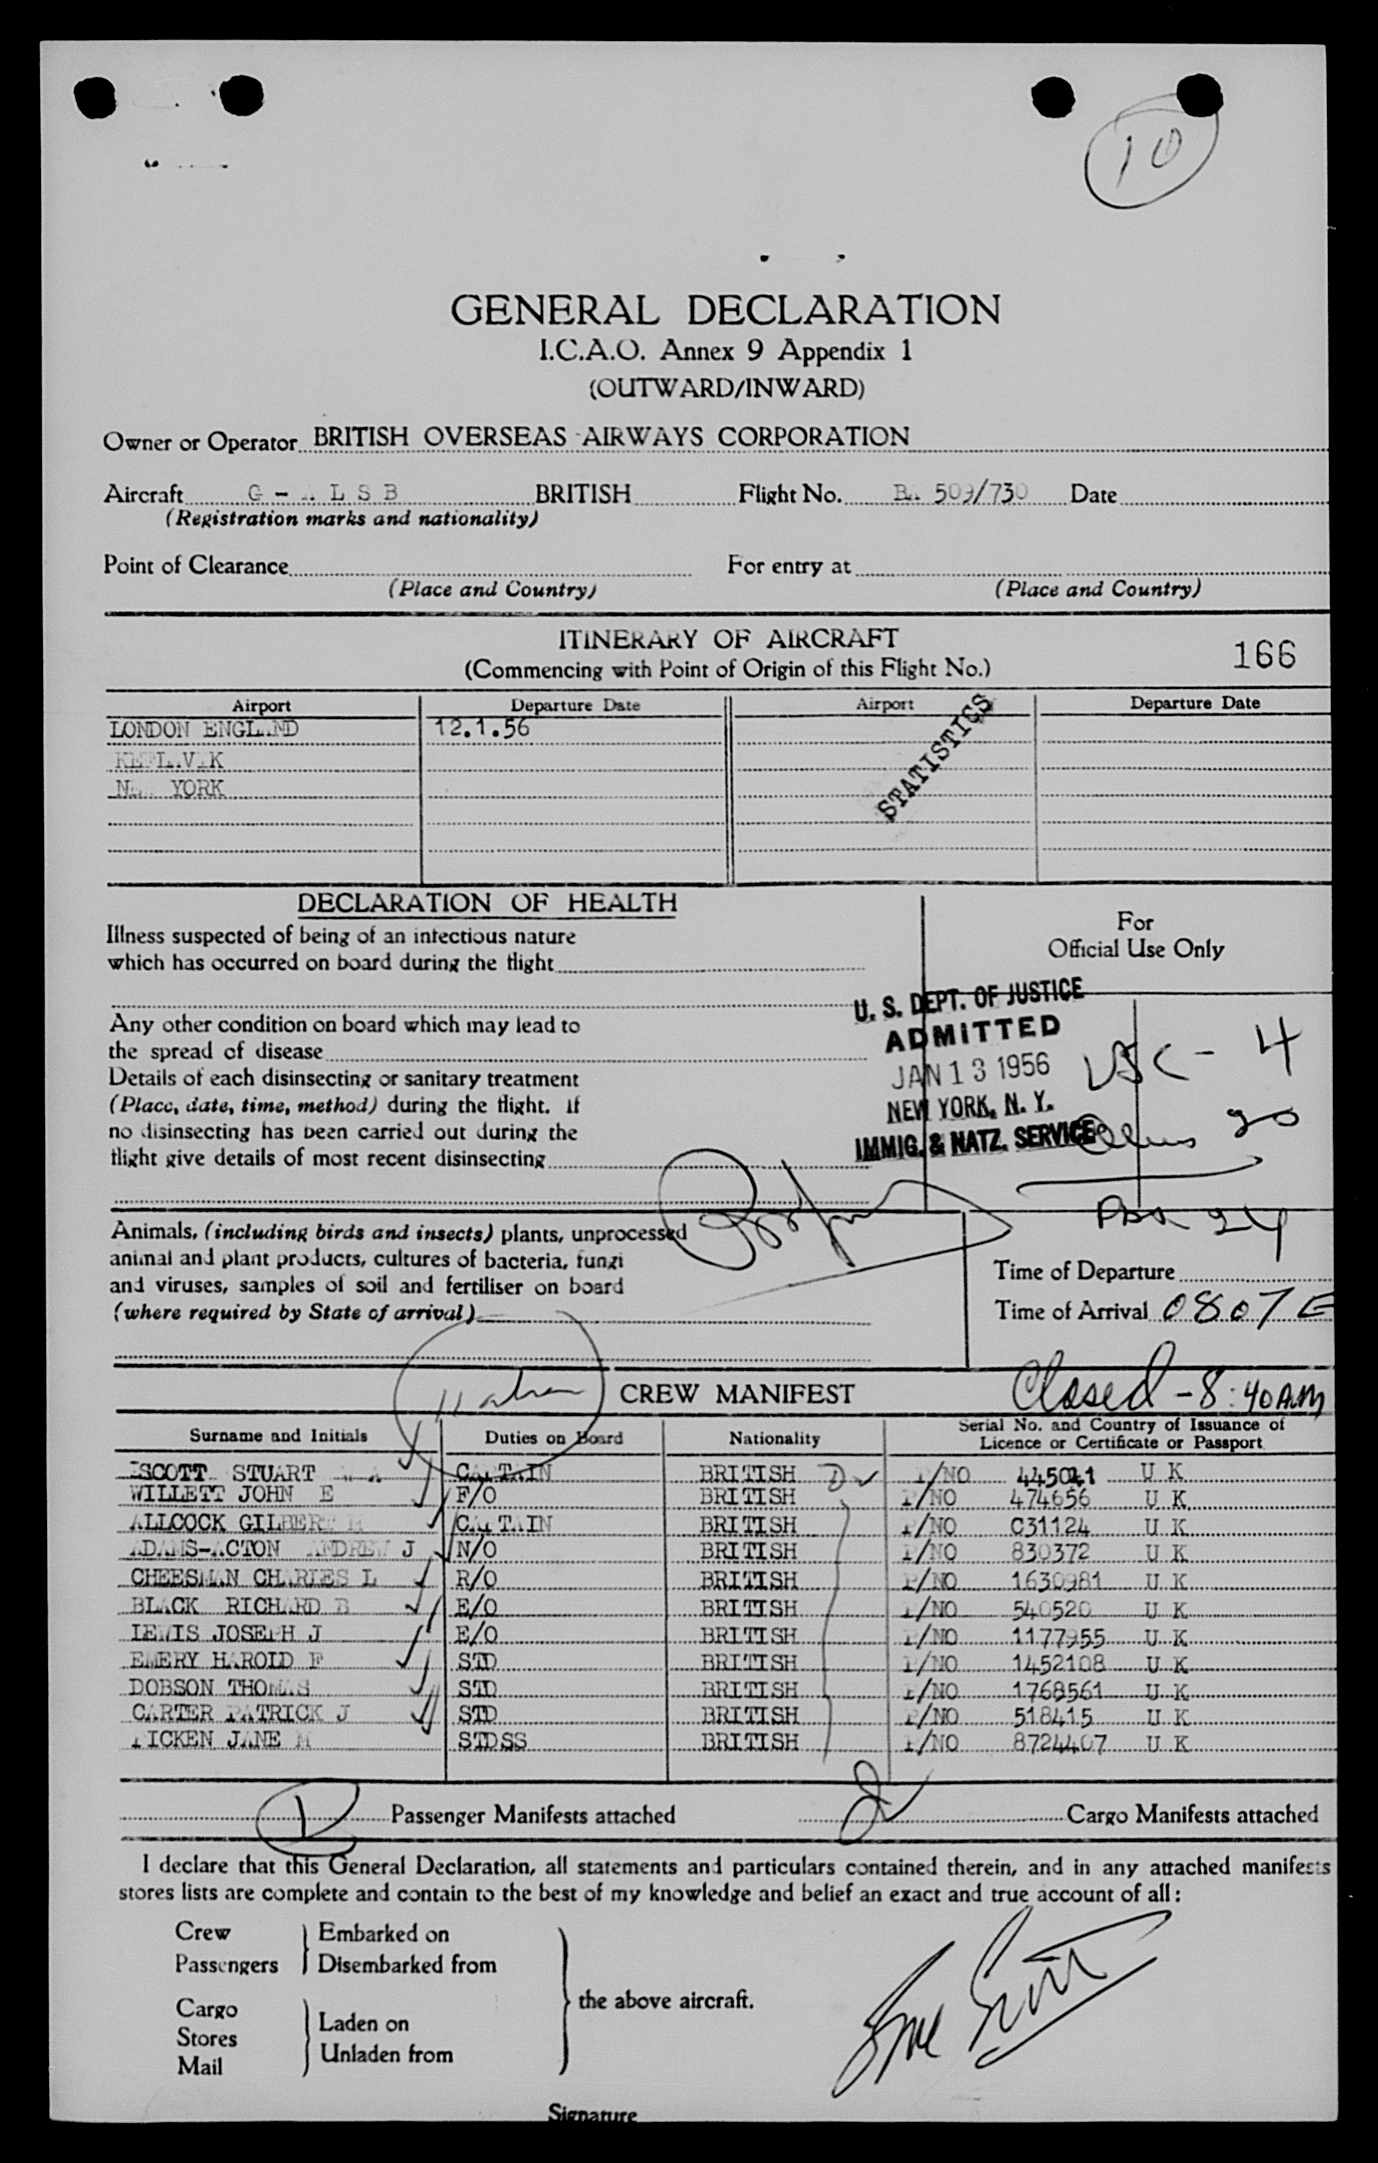 10
GENERAL DECLARATION
I.C.A.O. Annex 9 Appendix 1
(OUTWARD/INWARD)
Owner or Operator BRITISH OVERSEAS AIRWAYS CORPORATION
Aircraft G - A L S B BRITISH Flight No. BA 509/730 Date
(Registration marks and nationality)
Point of Clearance For entry at
(Place and Country) (Place and Country)
ITINERARY OF AIRCRAFT
(Commencing with Point of Origin of this Flight No.) 166
Airport Departure Date Airport Departure Date
LONDON ENGLAND 12.1.56
KEFLAVIK
NEW YORK
STATISTICS
DECLARATION OF HEALTH
For
Official Use Only
Illness suspected of being of an infectious nature
which has occurred on board during the flight
U. S. DEPT. OF JUSTICE
ADMITTED
JAN 13 1956
NEW YORK, N. Y.
IMMIG. & NATZ. SERVICE
USC - 4
Aliens 20
24
Any other condition on board which may lead to
the spread of disease
Details of each disinsecting or sanitary treatment
(Place, date, time, method) during the flight. If
no disinsecting has been carried out during the
flight give details of most recent disinsecting
Animals, (including birds and insects) plants, unprocessed
animal and plant products, cultures of bacteria, fungi
and viruses, samples of soil and fertiliser on board
(where required by State of arrival)
Time of Departure
Time of Arrival 0807 E
CREW MANIFEST Closed - 8:40 AM
Surname and Initials Duties on Board Nationality Serial No. and Country of Issuance of
Licence or Certificate or Passport
SCOTT STUART CAPTAIN BRITISH P/NO 445021 U K
WILLETT JOHN E F/O BRITISH P/NO 474656 U K
ALLCOCK GILBERT M CAPTAIN BRITISH P/NO C31124 U K
ADAMS-ACTON ANDREW J N/O BRITISH P/NO 830372 U K
CHEESMAN CHARLES L R/O BRITISH P/NO 1630981 U K
BLACK RICHARD B E/O BRITISH P/NO 540520 U K
LEWIS JOSEPH J E/O BRITISH P/NO 1177955 U K
EMERY HAROLD F STD BRITISH P/NO 1452108 U K
DOBSON THOMAS STD BRITISH P/NO 1768561 U K
CARTER PATRICK J STD BRITISH P/NO 518415 U K
PICKEN JANE M STDSS BRITISH P/NO 8724407 U K
1 Passenger Manifests attached 2 Cargo Manifests attached
I declare that this General Declaration, all statements and particulars contained therein, and in any attached manifests
stores lists are complete and contain to the best of my knowledge and belief an exact and true account of all:
Crew
Passengers
Embarked on
Disembarked from
Cargo
Stores
Mail
Laden on
Unladen from
the above aircraft.
Signature